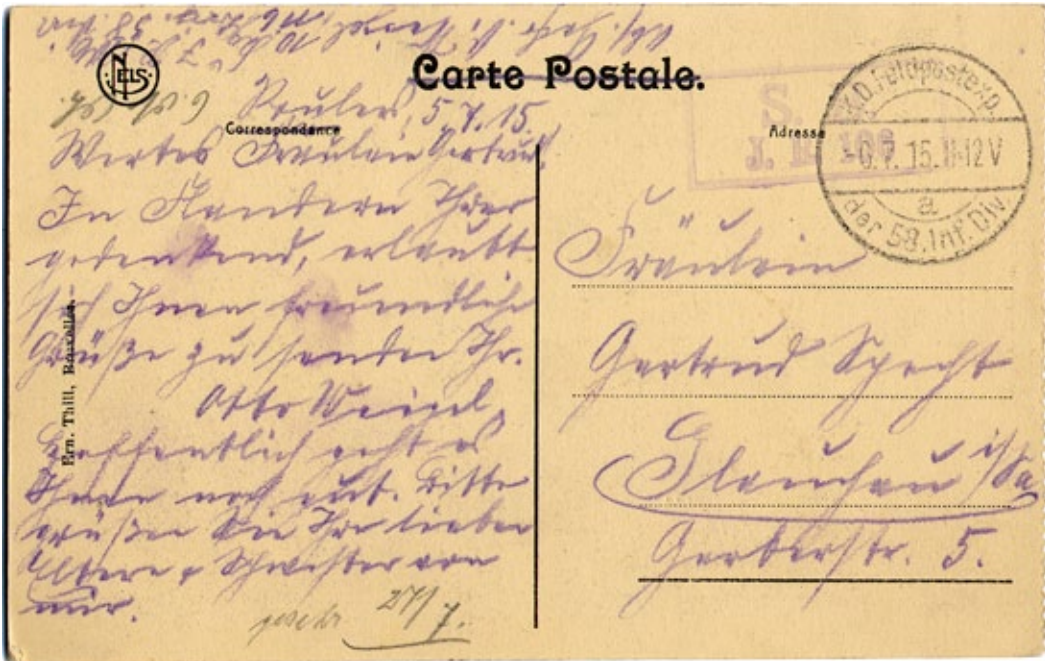 NELS
Carte Postale.
Correspondance
Adresse
S.
I. R. 106
K.D. Feldpostexp.
-6.7.15.11-12V
a
der 58. Inf. Div
Roulers, 5.7.15.
Wertes Fräulein Gertrud,
In Flandern Ihrer
gedenkend, erlaubt
sich Ihnen freundliche
Grüße zu senden Ihr.
Otto Weigel,
Hoffentlich geht es
Ihnen noch gut. Bitte
grüßen Sie Ihre lieben
Eltern u Schwester von
mir.
27/7.
Ern. Thill, Bruxelles.
Fräulein
Gertrud Specht
Glauchau i/Sa
Gerberstr. 5.